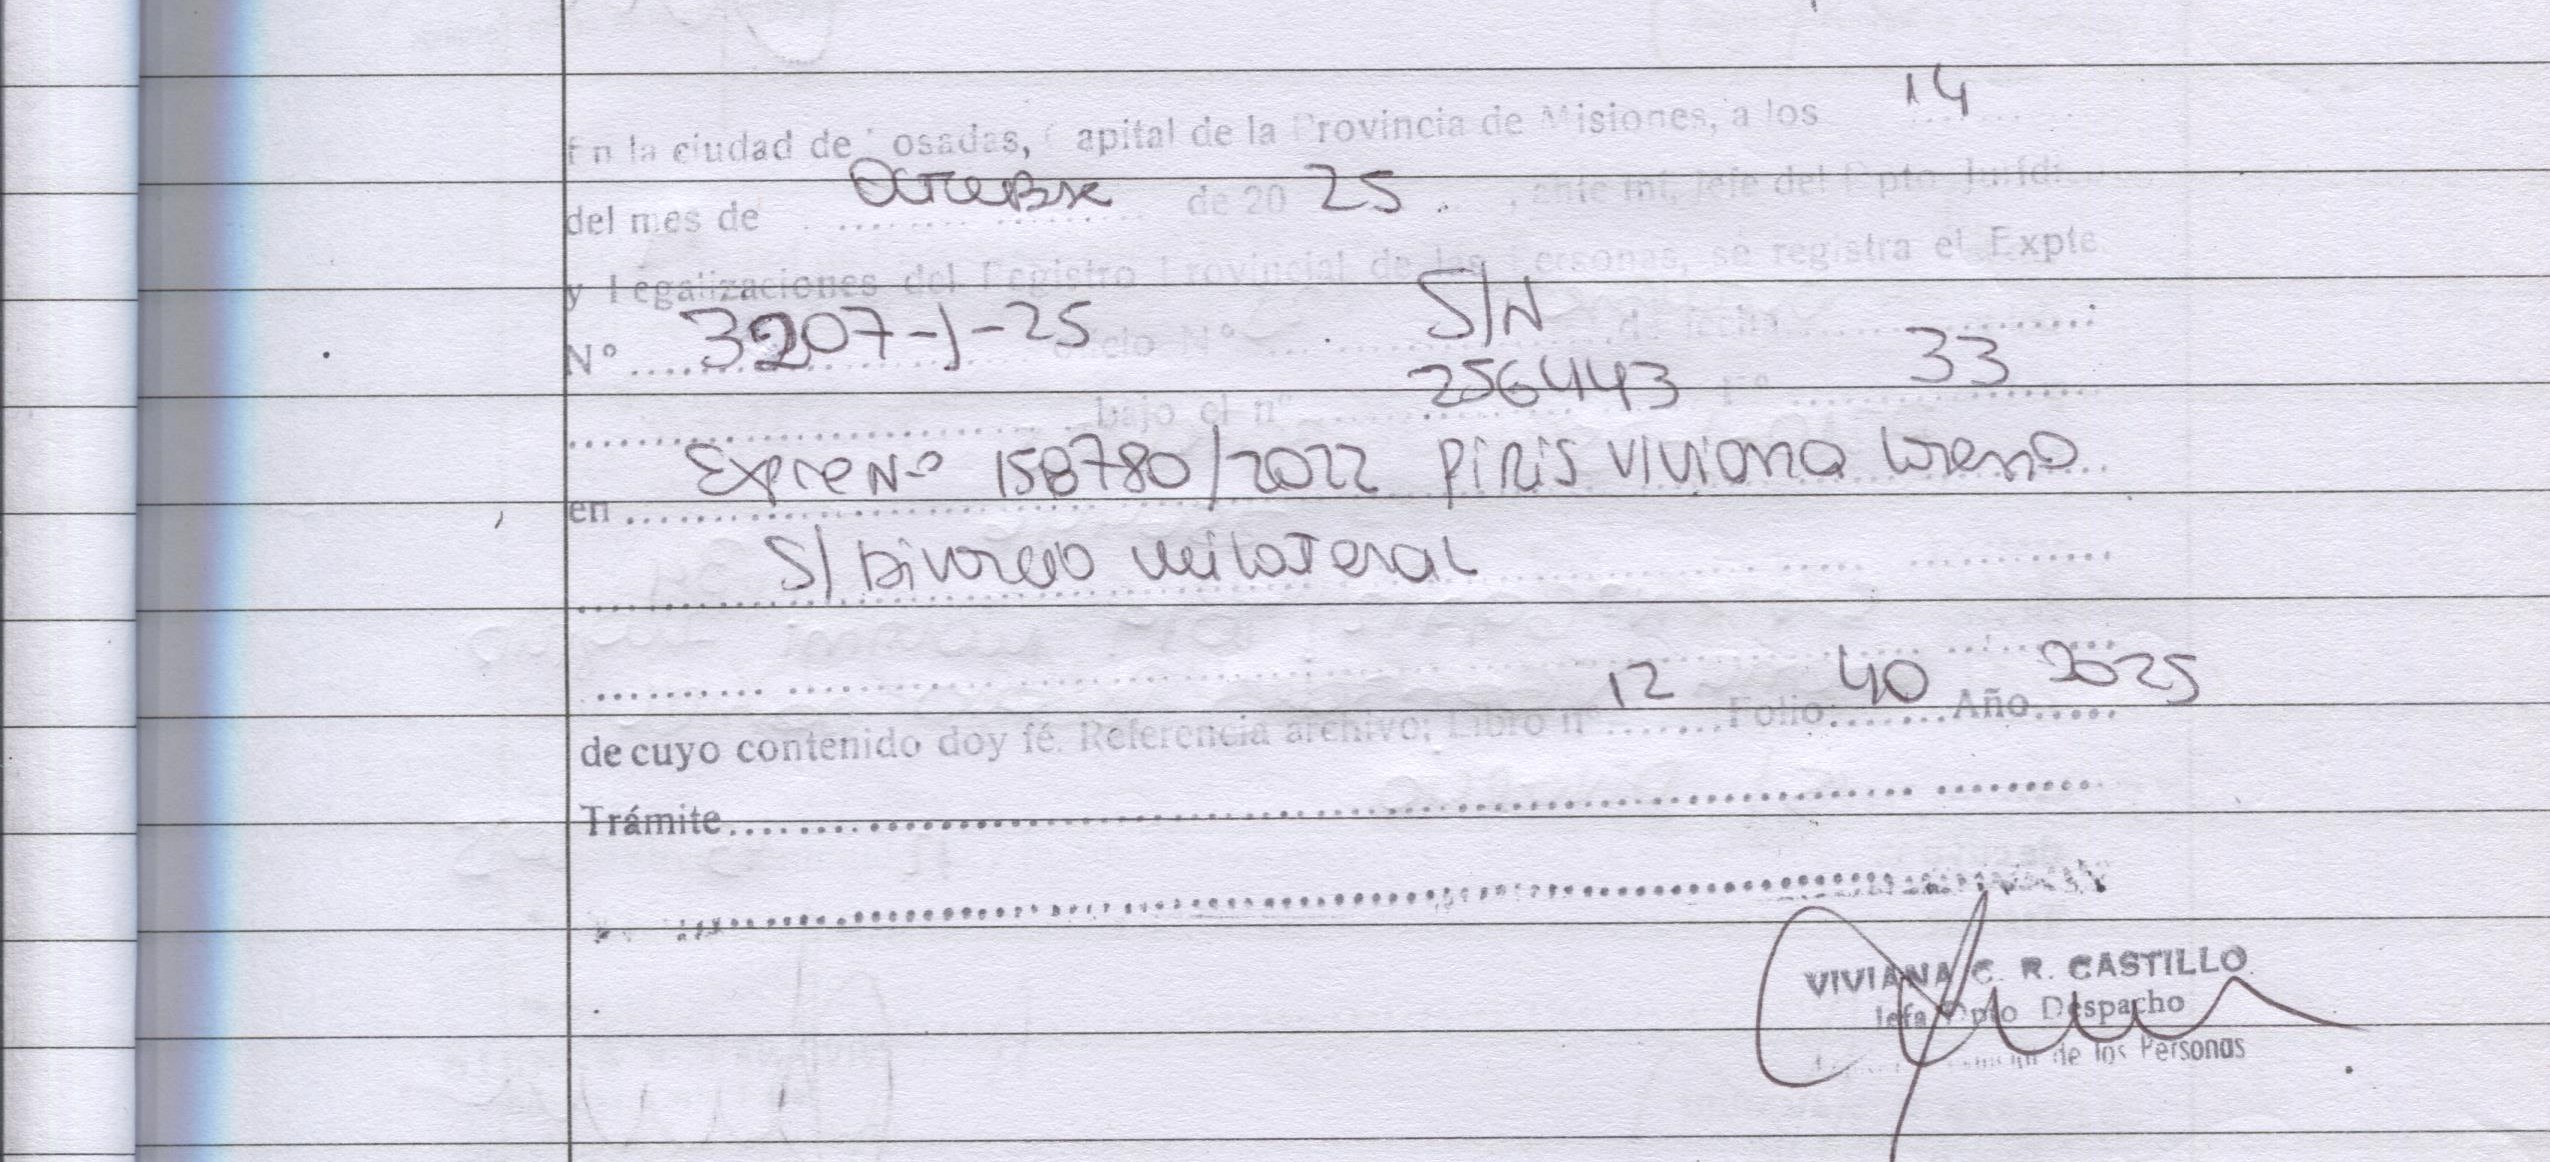 En la ciudad de Posadas, Capital de la Provincia de Misiones, a los 14
del mes de Octubre de 20 25. , ante mi, Jefe del Dpto Jurídi
y Legalizaciones del Registro Provincial de las Personas, se registra el Expte
Nº 3207-J-25 oficio Nº S/N de fecha
bajo el nº 256443 Fº 33
en Expte Nº 158780/2022 Piris Viviana Lorena
S/ Divorcio unilateral
de cuyo contenido doy fé. Referencia archivo; Libro nº 12 Folio 40 Año 2025
Trámite
VIVIANA C. R. CASTILLO
Jefa Dpto Despacho
de los Personas